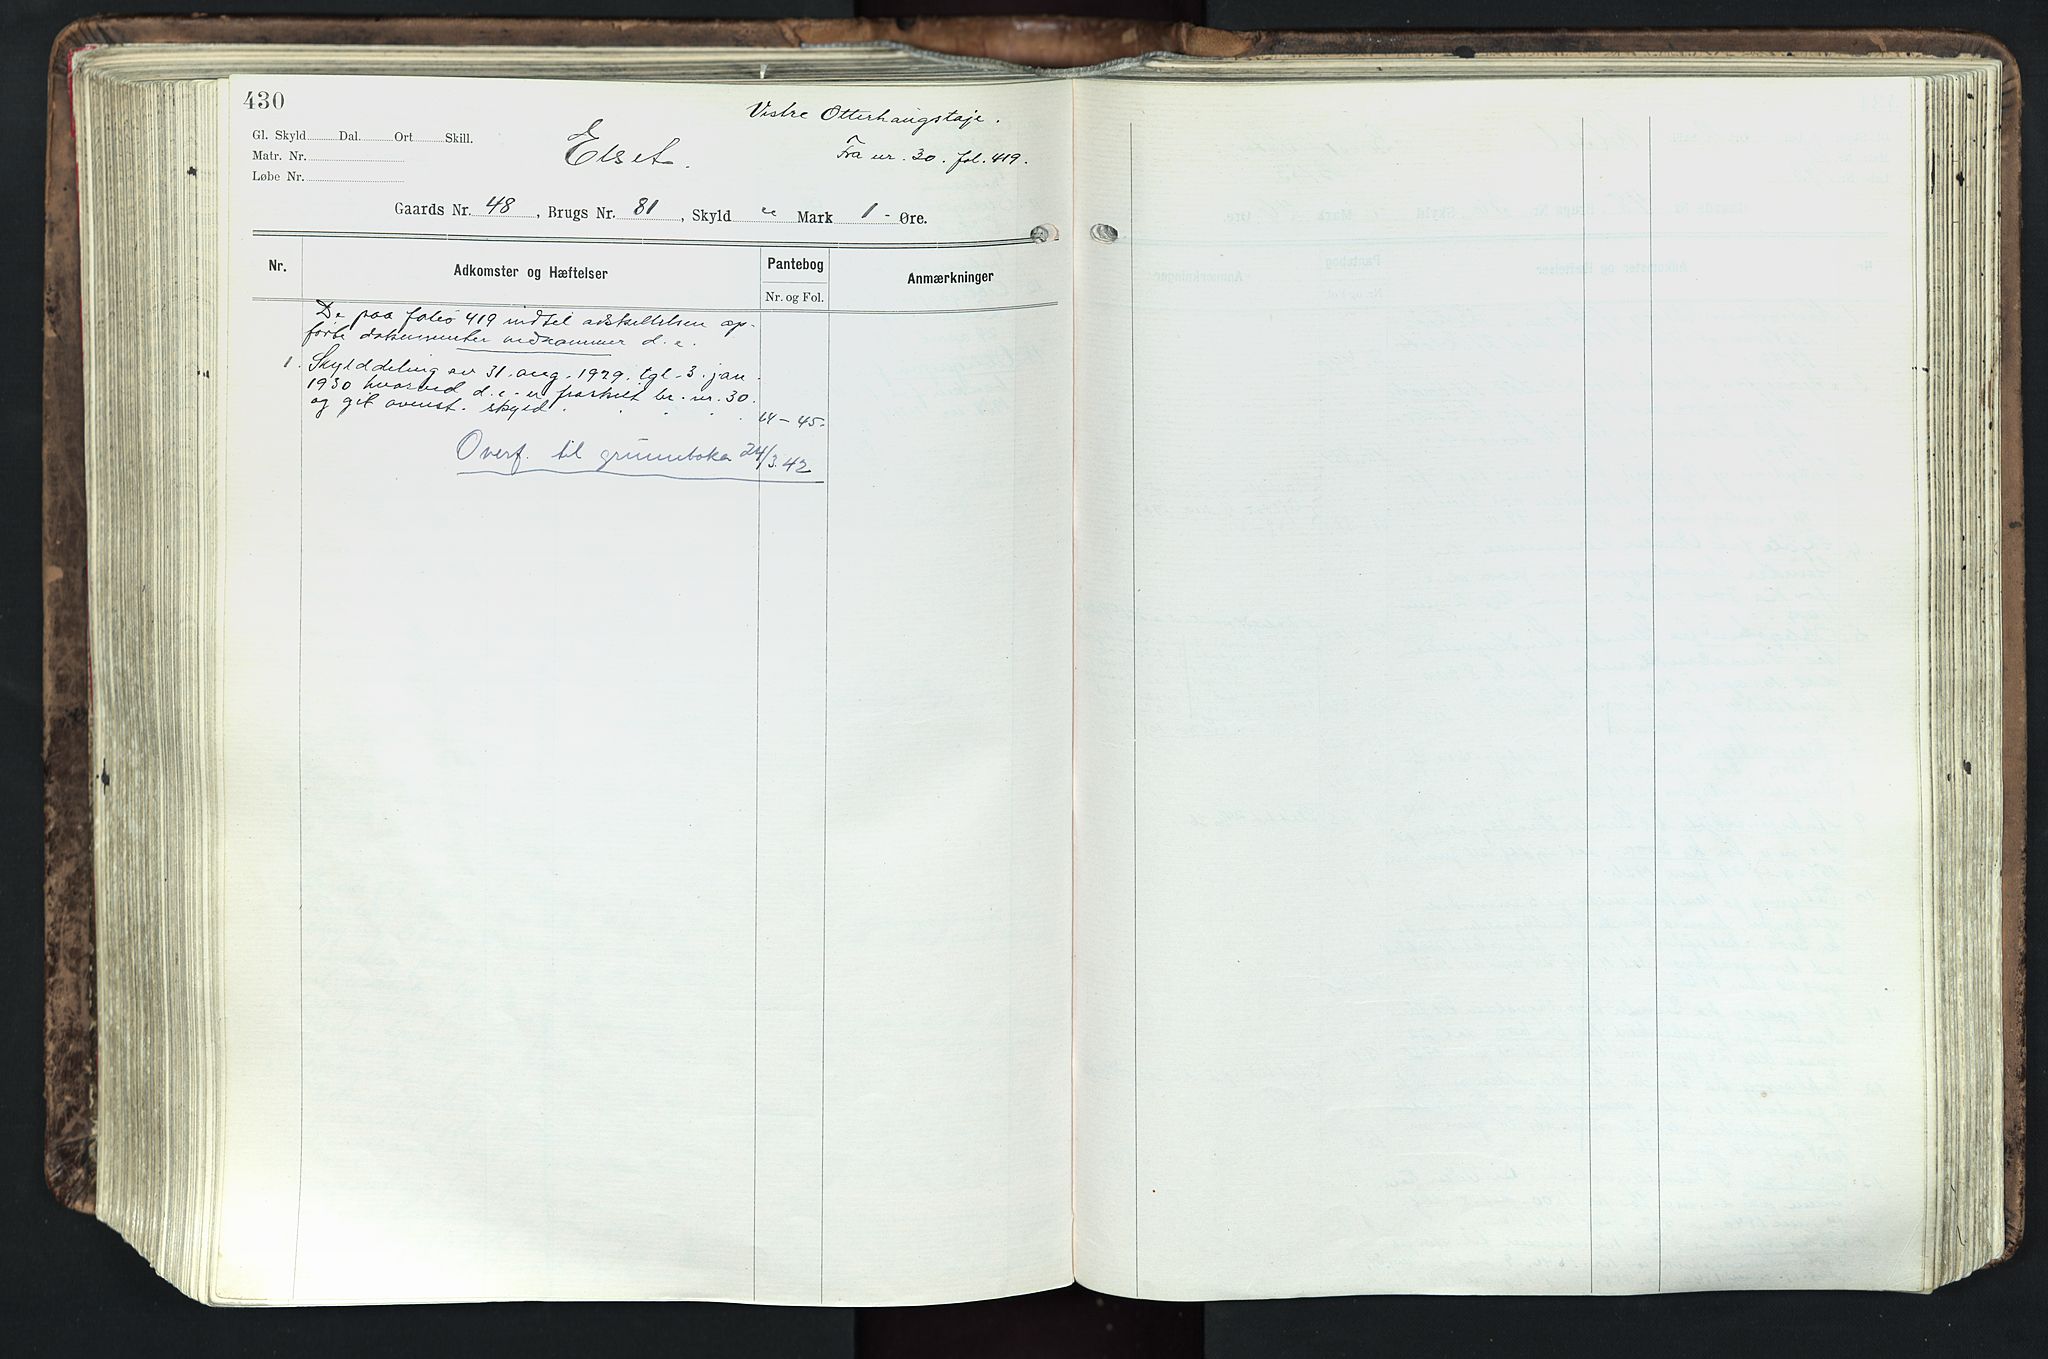 430
Vistre Otterhaugstøje.
Gl. Skyld Dal. Ort Skill.
Matr. Nr.
Løbe Nr.
Elset.
Fra nr. 30. fol. 419.
Gaards Nr. 48, Brugs Nr. 81, Skyld „ Mark 1 - Øre.
Nr.
Adkomster og Hæftelser
Pantebog
Nr. og Fol.
Anmærkninger
De paa folio 419 indtil adskillelsen op-
førte dokumenter vedkommer d. e.
1. Skylddeling av 31. aug. 1929, tgl. 3. jan.
1930 hvorved d. e. er fraskilt br. nr. 30.
og git ovenst. skyld. 14 - 45.
Overf. til grunnboka 24/3.42